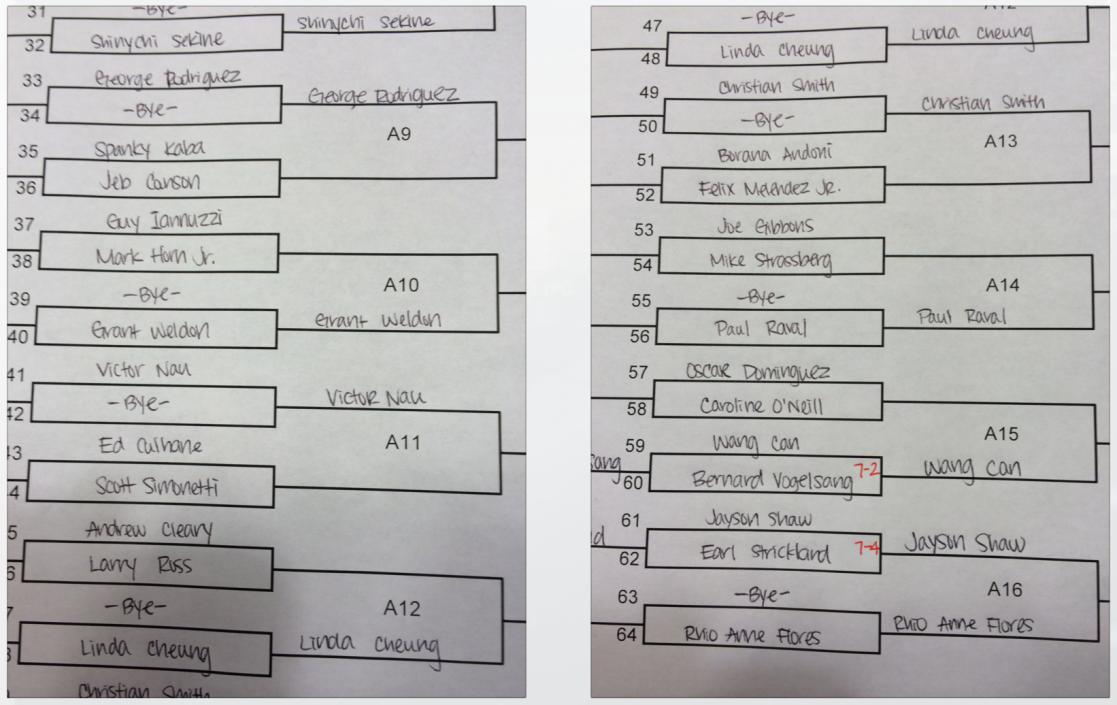 31
-Bye-
32
Shinychi Sekine
Shinychi Sekine
33
George Rodriguez
34
-Bye-
George Rodriguez
A9
35
Spanky Kaba
36
Jeb Canson
37
Guy Iannuzzi
38
Mark Horn Jr.
A10
39
-Bye-
40
Grant Weldon
Grant Weldon
41
Victor Nau
42
-Bye-
Victor Nau
A11
43
Ed Culhane
4
Scott Simonetti
5
Andrew Cleary
6
Larry Ross
A12
7
-Bye-
8
Linda Cheung
Linda Cheung
Christian Smith
A12
47
-Bye-
48
Linda Cheung
Linda Cheung
49
Christian Smith
50
-Bye-
Christian Smith
A13
51
Borana Andoni
52
Felix Melendez Jr.
53
Joe Gibbons
54
Mike Strassberg
A14
55
-Bye-
56
Paul Raval
Paul Raval
57
Oscar Dominguez
58
Caroline O'Neill
A15
59
Wang Can
sang
60
Bernard Vogelsang 7-2
Wang Can
61
Jayson Shaw
d
62
Earl Strickland 7-4
Jayson Shaw
A16
63
-Bye-
64
Rhio Anne Flores
Rhio Anne Flores